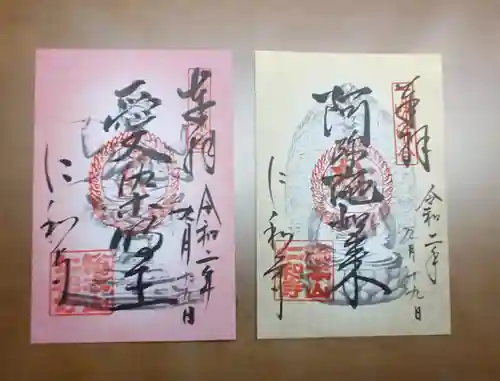 奉拝
令和二年
九月十九日
愛染明王
仁和寺
奉拝
令和二年
九月十九日
阿弥陀如来
仁和寺